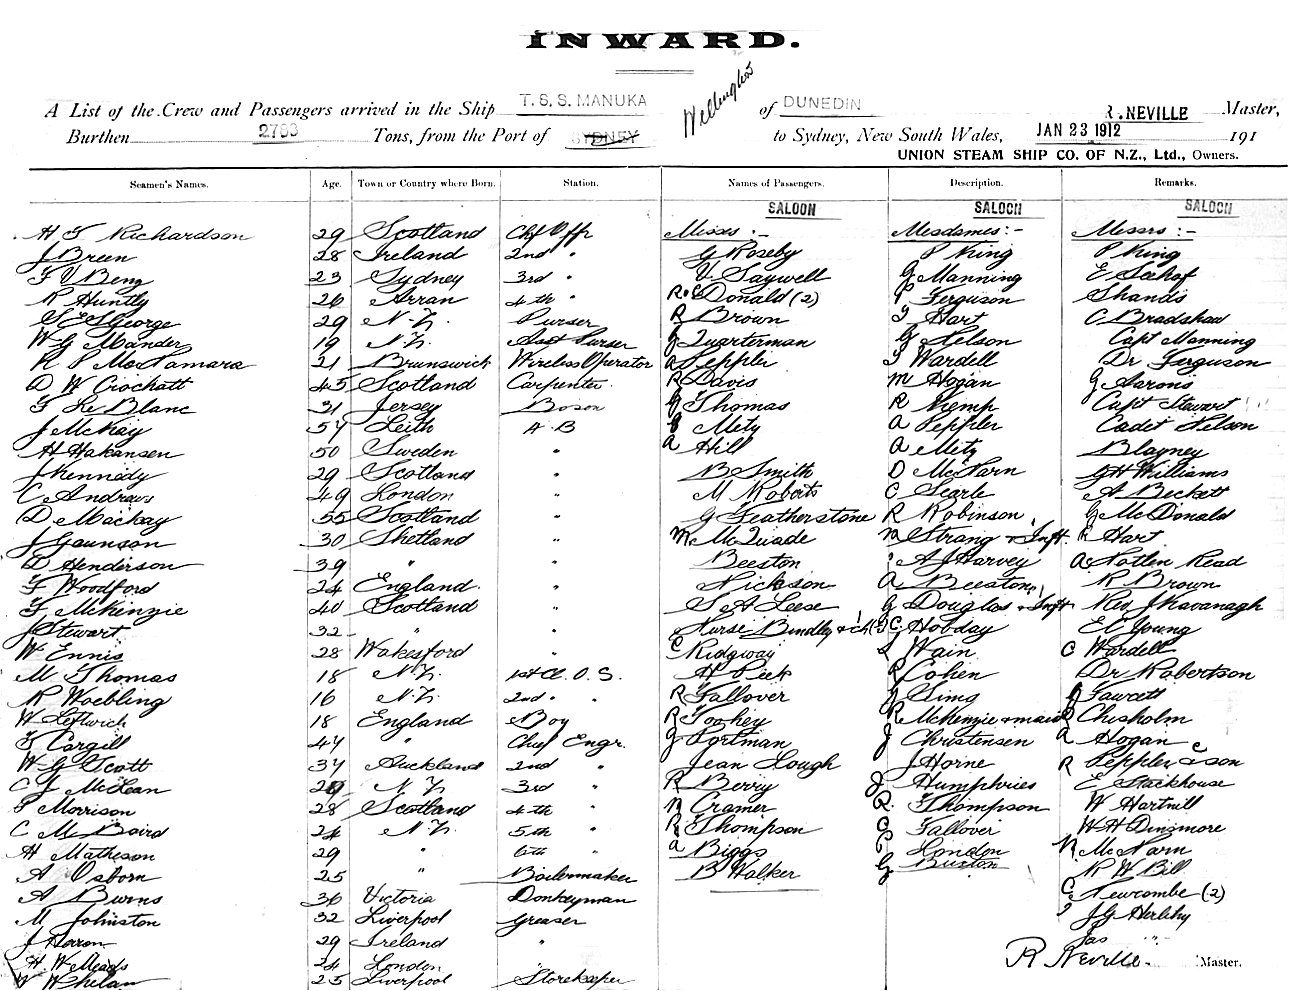 INWARD.
A List of the Crew and Passengers arrived in the Ship T. S. S. MANUKA Wellington of DUNEDIN R. NEVILLE Master,
Burthen 2783 Tons, from the Port of SYDNEY to Sydney, New South Wales, JAN 23 1912 191
UNION STEAM SHIP CO. OF N.Z., Ltd., Owners.
Seamen's Names. Age. Town or Country where Born. Station. Names of Passengers. Description. Remarks.
SALOON SALOON SALOON
H T Richardson 29 Scotland Chf Offr Misses :- Mesdames :- Messrs :-
J Breen 28 Ireland 2nd " G Roseby P King P King
F V Beng 23 Sydney 3rd " V Saywell G Manning E
R Huntly 26 Arran 4th " R. C Donald (2) Ferguson Shands
George 29 N.Z. Purser R Brown Hart C Bradshaw
W G Mander 19 N.Z. Asst Purser Quarterman G Nelson Capt Manning
R P McNamara 21 Brunswick Wireless Operator A Peppler Wardell Dr Ferguson
D W Crochatt 45 Scotland Carpenter R Davis M Hogan G Aarons
F Le Blanc 31 Jersey Boson G Thomas R Kemp Capt Stewart
J McKay 54 Leith A B Metz A Peppler Cadet Nelson
H Hakansen 50 Sweden " A Hill A Metz Blayney
J Kennedy 29 Scotland " B Smith D McNarn G H Williams
C Andrews 49 London " M Roberts C Searle A Beckett
D Mackay 55 Scotland " G Featherstone R Robinson G McDonald
J Gaunson 30 Shetland " M McQuade Strang & Inft. R Hart
D Henderson 39 " " Beeston A J Harvey A Notten Read
F Woodford 24 England " Nickson A Beeston R Brown
F McKinzie 40 Scotland " S A Leese G Douglas & Inft Rev J Kavanagh
J Stewart 32 " " Nurse Bindley C. Hobday E C Young
W Ennis 28 Wakesford " C Ridgway Wain C Wardell
M Thomas 18 N.Z. 1st Cl. O. S. H Peek Cohen Dr Robertson
R Woebling 16 N.Z. 2nd " " R Fallover Sims Fawcett
W Leftwich 18 England Boy R Toohey R McKenzie & maid Chisholm
F Cargill 44 " Chief Engr. G Portman J Christensen A Hogan
W G Scott 34 Auckland 2nd " Jean Lough J Horne R Peppler & son
C J McLean N Z 3rd " R Berry J Humphries E Stackhouse
Morrison 28 Scotland 4th " N Cramer R. Thompson W Hartnill
C M Baird 24 N.Z. 5th " R Thompson C Fallover W H Dinsmore
H Matheson 29 " 6th " A Biggs London N McNarn
A Osborn 25 " Boilermaker B Walker G Buxton R W Bill
A Burns 36 Victoria Donkeyman C Newcombe (2)
M Johnston 32 Liverpool Greaser J G Herlihy
J Heron 29 Ireland " Jas "
H W Meads 24 London " R Neville Master.
W Whelan 25 Liverpool Storekeeper